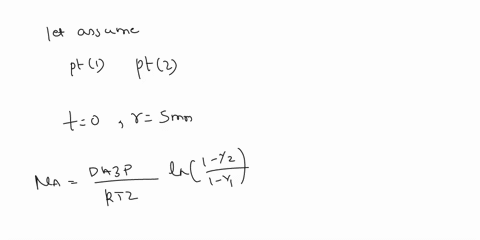 let assume
pt(1) pt(2)
t=0 , r=5mm
NA = DAB P / RTZ ln(1-Y2 / 1-Y1)